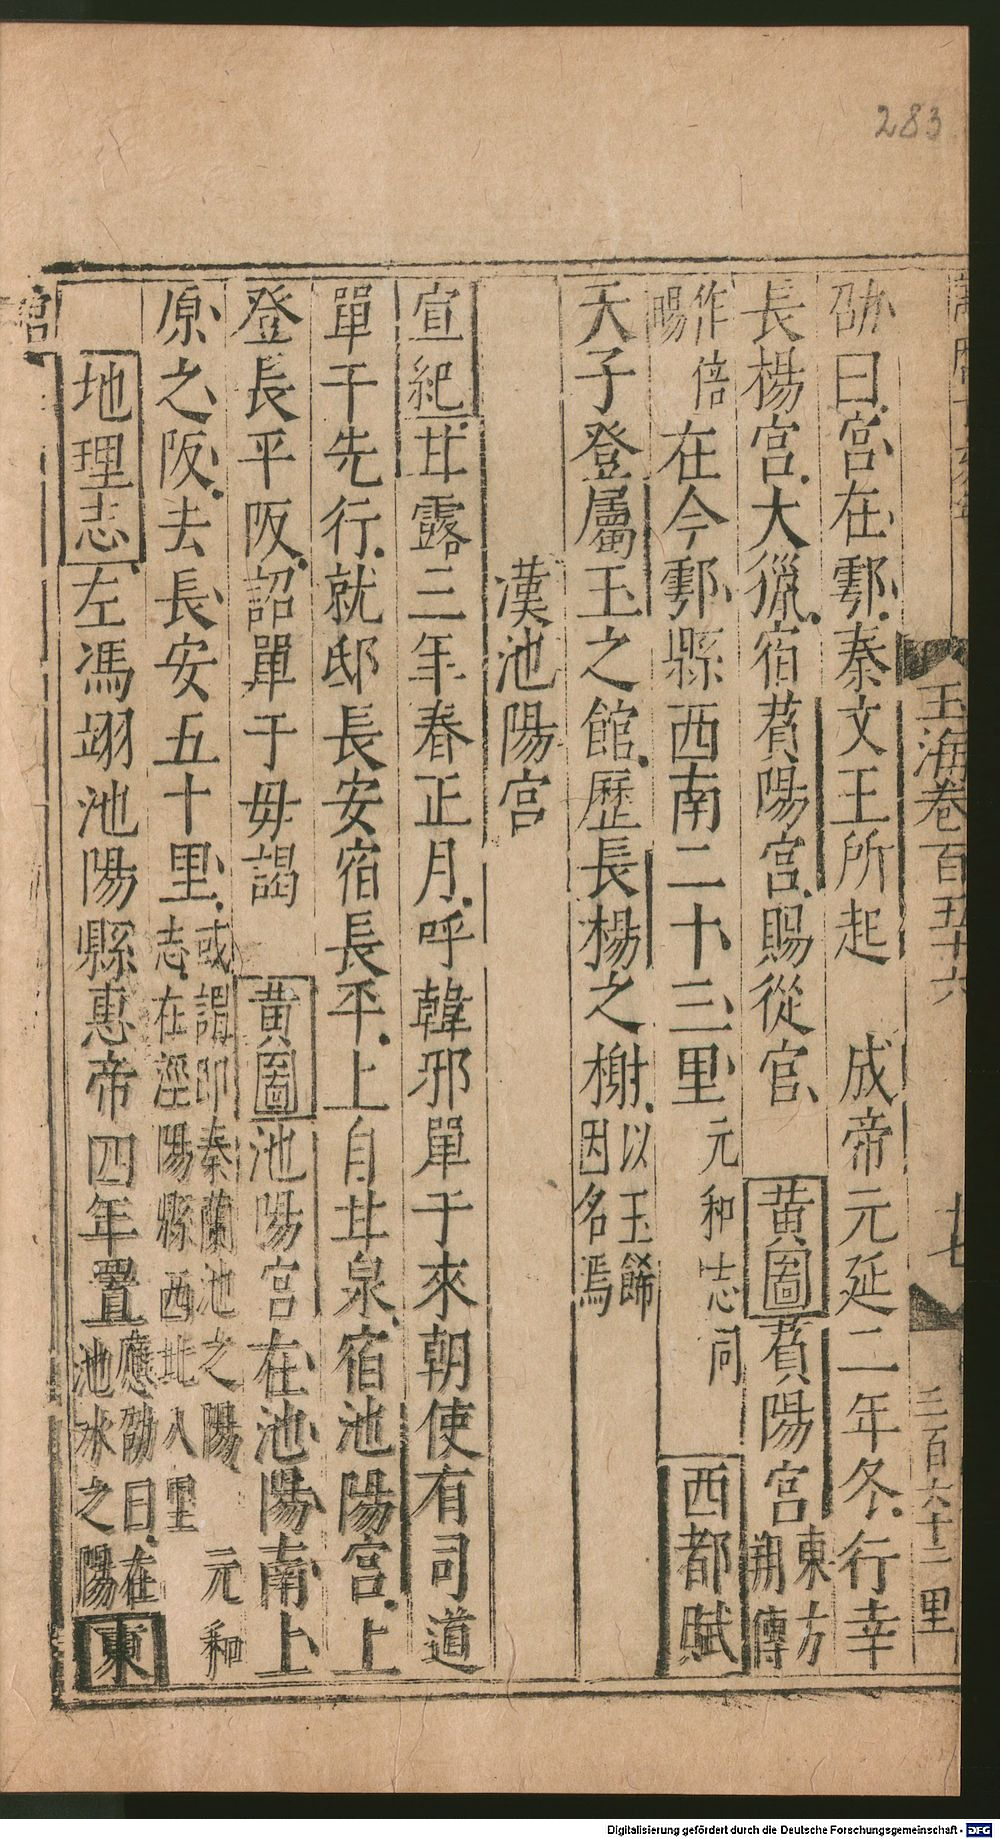 283
玉海卷百五十六
十七
三百六十二
里
劭曰宫在鄠秦文王所起　成帝元延二年冬行幸
長楊宫大獵宿萯陽宫賜從官　黄圖萯陽宫東方朔傳
作倍陽在今鄠縣西南二十三里元和志同　西都賦
天子登屬玉之館歷長楊之榭以玉飾因名焉
漢池陽宫
宣紀甘露三年春正月呼韓邪單于來朝使有司道
單于先行就邸長安宿長平上自甘泉宿池陽宫上
登長平阪詔單于毋謁　黄圖池陽宫在池陽南上
原之阪去長安五十里或謂即秦蘭池之陽　元和志在涇陽縣西北八里
地理志左馮翊池陽縣惠帝四年置應劭曰在池水之陽東
宫
Digitalisierung gefördert durch die Deutsche Forschungsgemeinschaft - DFG